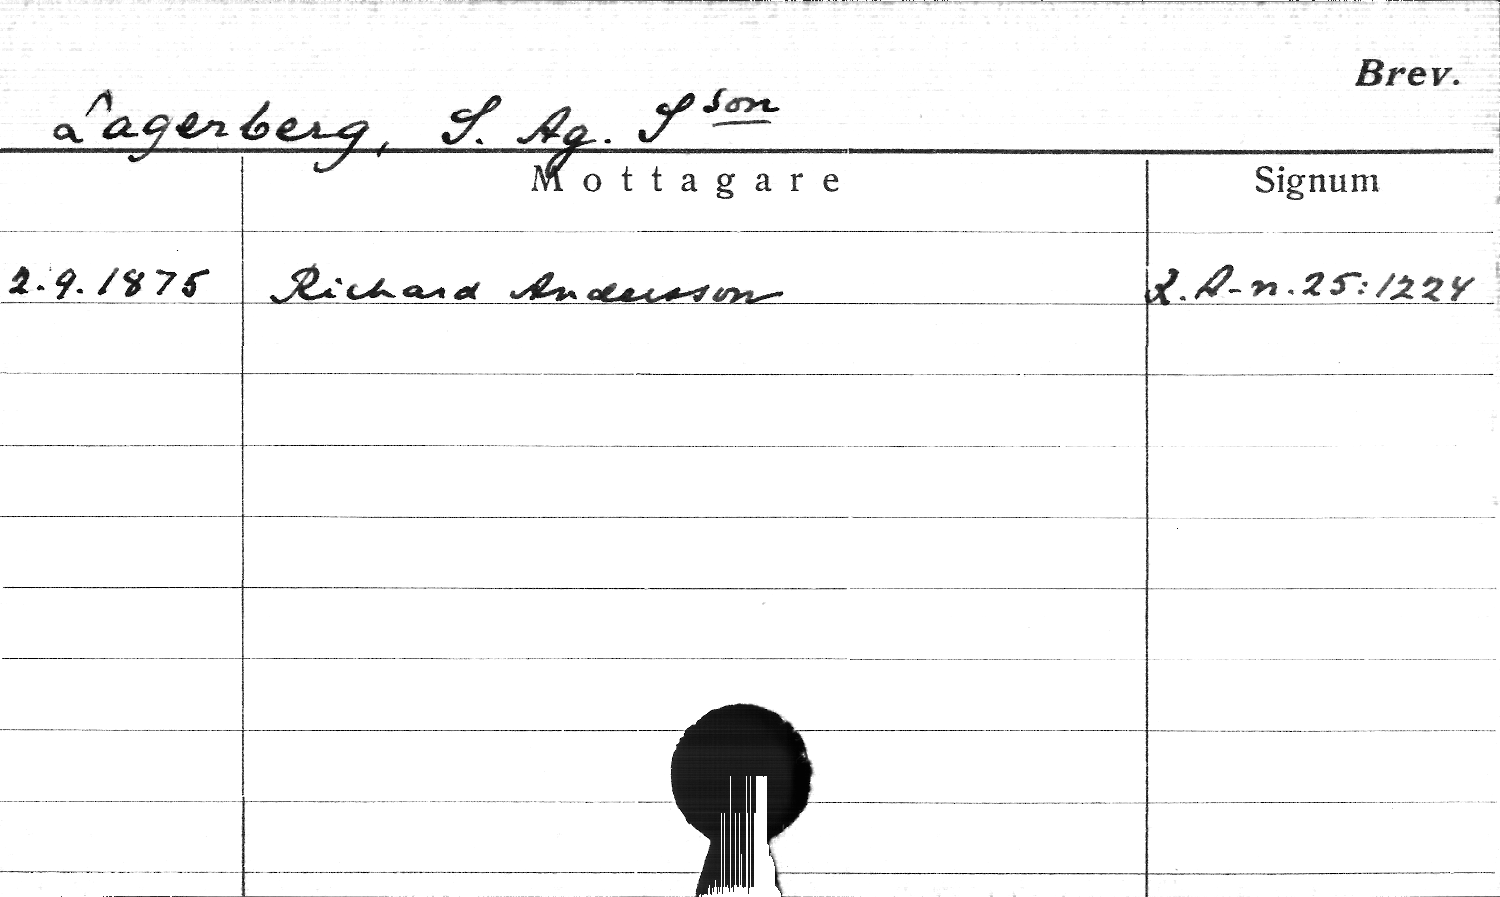 Brev.
Lagerberg, S. Ag. Sson
Mottagare Signum
2.9.1875 Richard Andersson L.A-n.25:1224